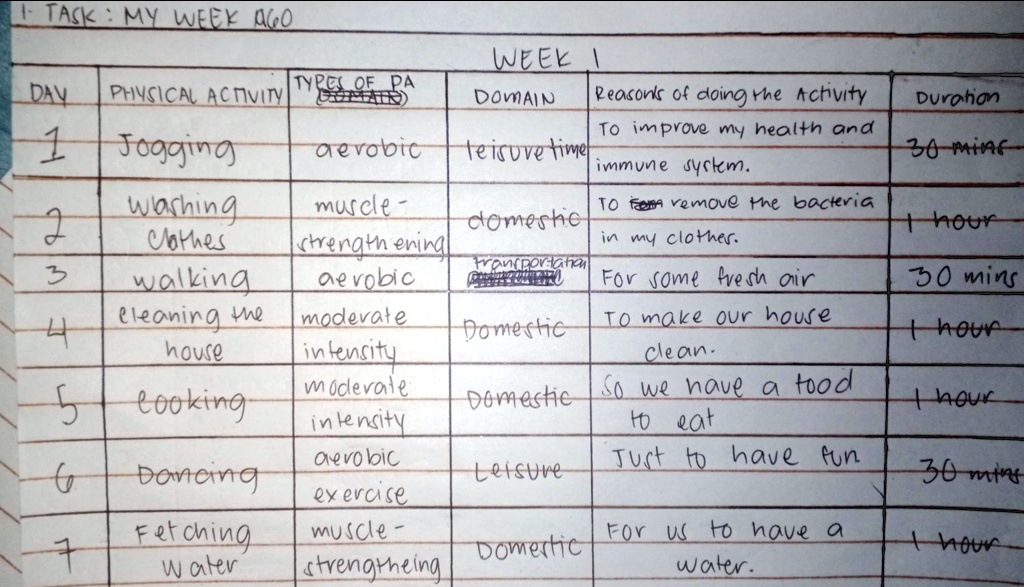 1. TASK: MY WEEK AGO
WEEK 1
DAY PHYSICAL ACTIVITY TYPES OF PA DOMAIN Reasons of doing the Activity Duration
1 Jogging aerobic leisuretime To improve my health and immune system. 30 mins
2 washing clothes muscle-strengthening domestic To remove the bacteria in my clothes. 1 hour
3 walking aerobic transportation For some fresh air 30 mins
4 cleaning the house moderate intensity Domestic To make our house clean. 1 hour
5 cooking moderate intensity Domestic So we have a food to eat 1 hour
6 Dancing aerobic exercise Leisure Just to have fun 30 mins
7 Fetching water muscle-strengtheing Domestic For us to have a water. 1 hour